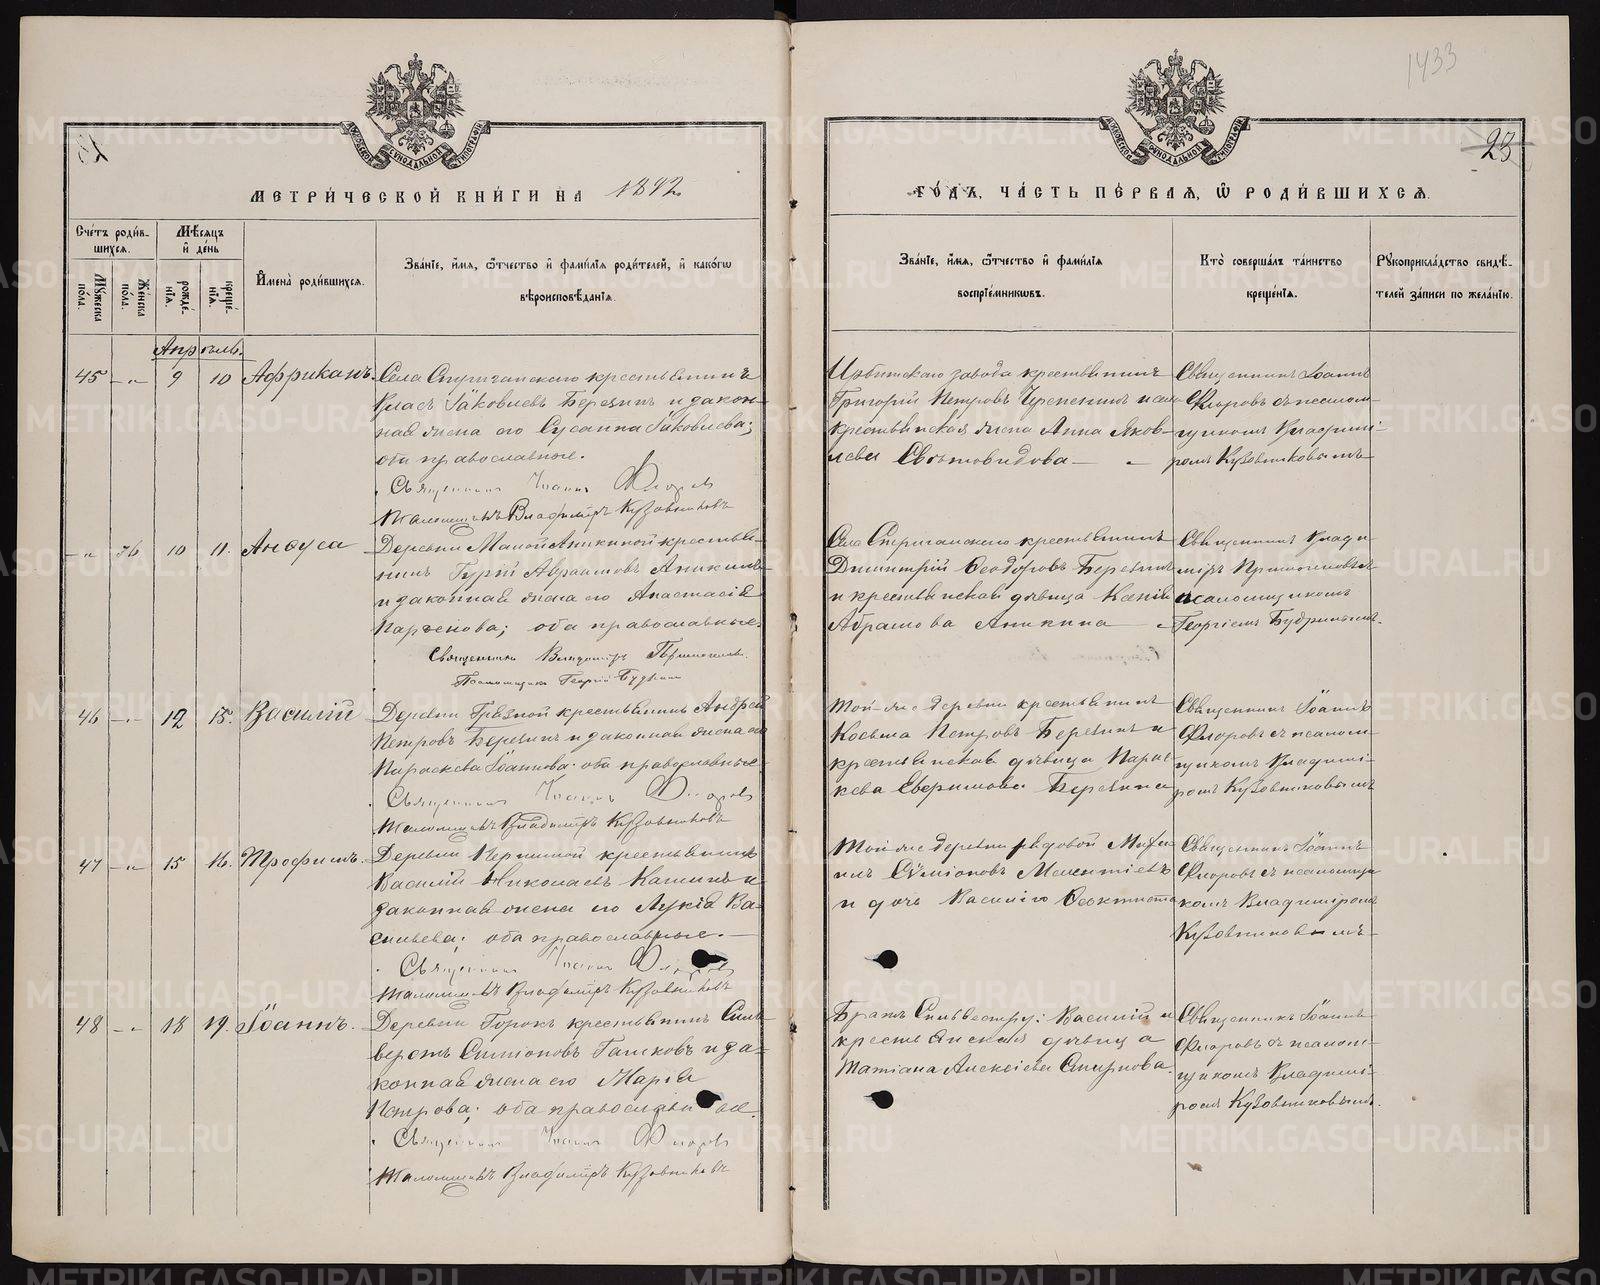 1433
23
МЕТРИ́ЧЕСКОЙ КНИ́ГИ НА 1892
ГО́ДЪ, ЧА́СТЬ ПЕ́РВАЯ, Ѡ РОДИ́ВШИХСЯ.
Сче́тъ роди́вшихся.
Мѣ́сяцъ и҆ де́нь
Му́жеска по́ла.
Же́нска по́ла.
рожде́нїя.
креще́нїя.
И҆мена̀ роди́вшихся.
Зва́нїе, и҆́мя, ѻ҆́тчество и҆ фами́лїя роди́телей, и҆ како́гѡ вѣроисповѣ́данїя.
Зва́нїе, и҆́мя, ѻ҆́тчество и҆ фами́лїя воспрїе́мникѡвъ.
Кто̀ соверша́лъ та́инство креще́нїя.
Рꙋкоприкла́дство свидѣ́телей за́писи по жела́нїю.
Апрѣль.
45 -„- 9 10 Африканъ.
крестьянинъ
Власъ Іаковлевъ Березинъ и закон-
ная жена его Сусанна Іаковлева;
оба православные.
Священникъ Іоаннъ Флоровъ
Псаломщикъ Владиміръ Кузовниковъ
Ирбитскаго завода крестьянинъ
Григорій Петровъ
крестьянская жена Анна Яков-
лева
Священникъ Іоаннъ
Флоровъ съ псалом-
щикомъ Владимі-
ромъ Кузовниковымъ
-„- 36 10 11. Анѳуса
Деревни Малой Аникиной крестья-
нинъ Гурій Авраамовъ Аникинъ
и законная жена его Анастасія
Парѳенова; оба православные.
Священникъ Владиміръ
Псаломщикъ Георгій Будринъ
крестьянинъ
Димитрій Ѳеодоровъ Березинъ
и крестьянская дѣвица Ксенія
Абрамова Аникина
Священникъ Влади-
міръ
псаломщикомъ
Георгіемъ Будринымъ.
46 -„- 12 15. Василій
Деревни Грязной крестьянинъ Андрей
Петровъ Березинъ и законная жена его
Параскева Іоаннова; оба православные
Священникъ Іоаннъ Флоровъ
Псаломщикъ Владиміръ Кузовниковъ
Той же деревни крестьянинъ
Косьма Петровъ Березинъ и
крестьянская дѣвица Парас-
кева Березина
Священникъ Іоаннъ
Флоровъ съ псалом-
щикомъ Владимі-
ромъ Кузовниковымъ
47 -„- 15 16. Трофимъ.
Деревни крестьянинъ
Василій Николаевъ Кашинъ и
законная жена его Лукія Ва-
сильева; оба православные.
Священникъ Іоаннъ Флоровъ
Псаломщикъ Владиміръ Кузовниковъ
Той же деревни рядовой Михаи-
илъ Сѵміоновъ
и дочь Василія Ѳеоктиста
Священникъ Іоаннъ
Флоровъ съ псаломщи-
комъ Владиміромъ
Кузовниковымъ
48 -„- 18 19. Іоаннъ.
Деревни Горокъ крестьянинъ Силь-
верстъ Симіоновъ Гашковъ и за-
конная жена его Марія
Петрова; оба православные.
Священникъ Іоаннъ Флоровъ
Псаломщикъ Владиміръ Кузовниковъ
Братъ Сильвестру: Василій и
крестьянская дѣвица
Татіана Алексіева Смирнова.
Священникъ Іоаннъ
Флоровъ съ псалом-
щикомъ Владимі-
ромъ Кузовниковымъ.
METRIKI.GASO-URAL.RU